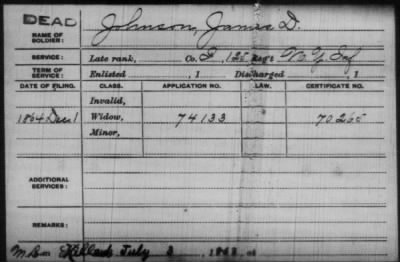 DEAD
Johnson, James D.
NAME OF SOLDIER:
SERVICE: Late rank, Co. I, 125 Reg't N.Y. Inf
TERM OF SERVICE: Enlisted , 1 Discharged , 1
DATE OF FILING. CLASS. APPLICATION NO. LAW. CERTIFICATE NO.
Invalid,
1864 Dec 1 Widow, 74133 70265
Minor,
ADDITIONAL SERVICES:
REMARKS:
Killed July